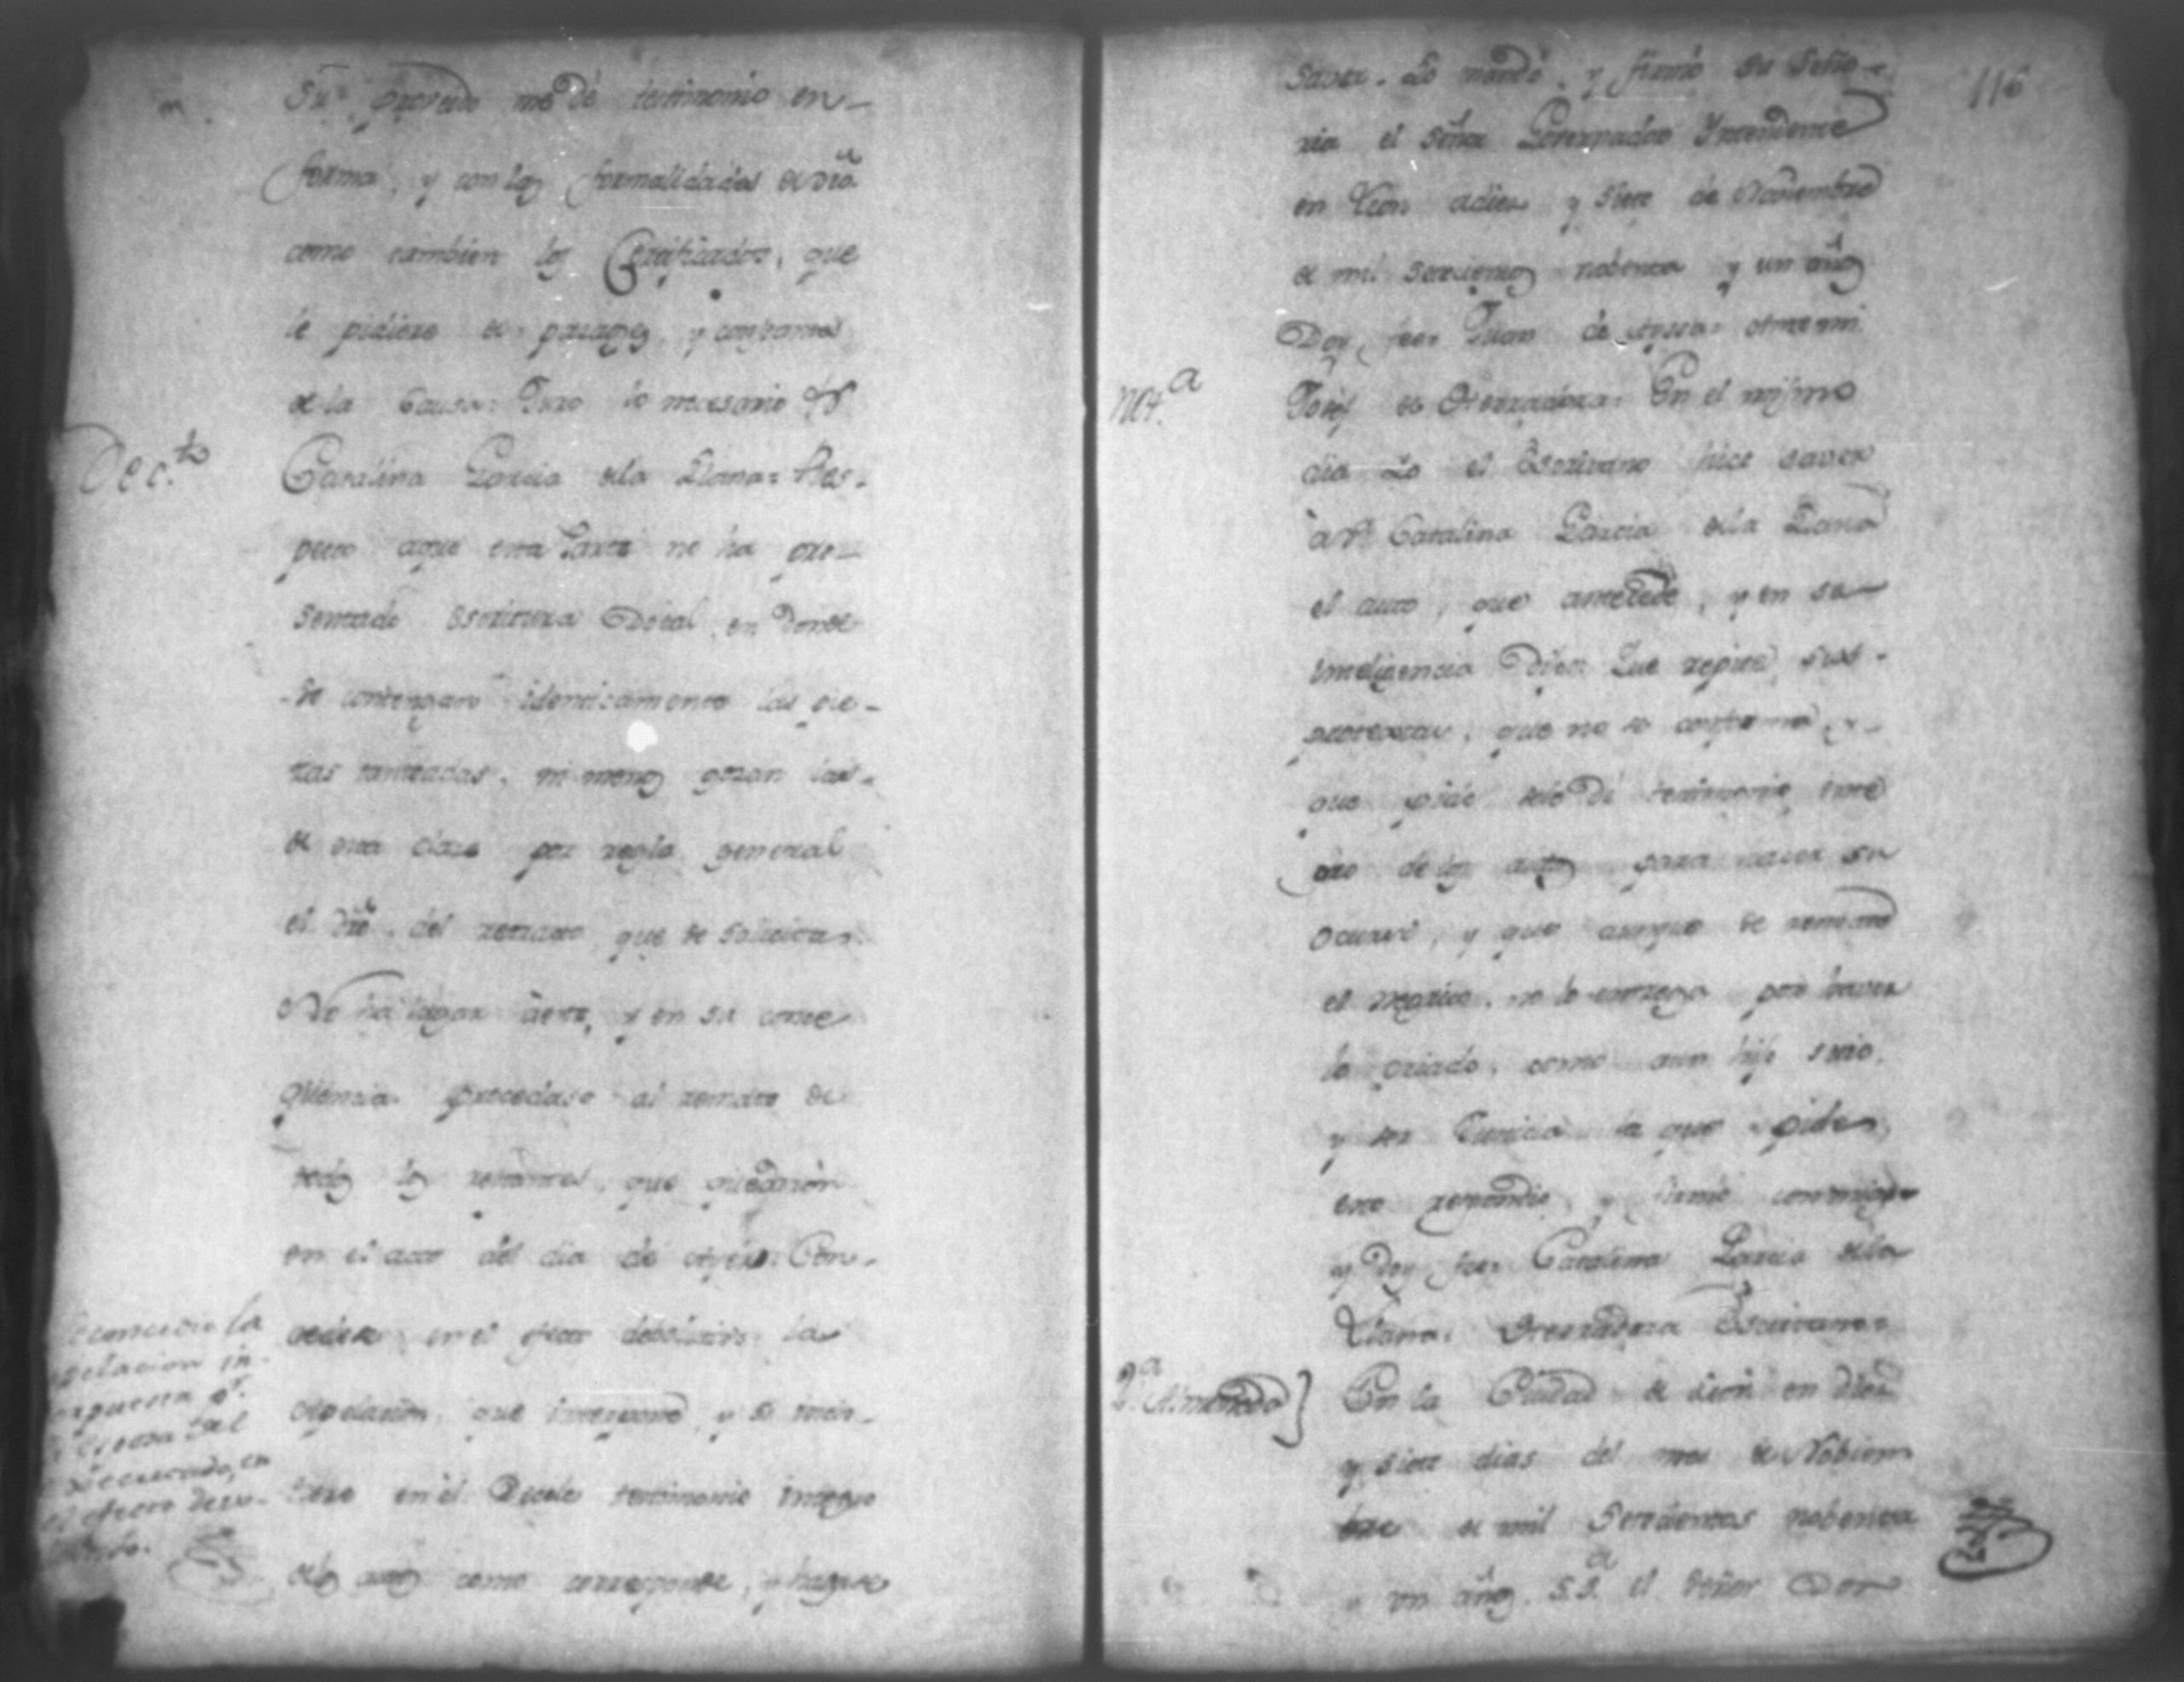 Su proveido me dé testimonio en
forma, y con las formalidades de dro̅
como tambien los Certificados, que
le pidiere de parages, y constancias
de la Causa: Juro lo necesario &ª
Dec.to
Catalina Garcia dela Llana= Res-
pecto aque esta Parte no ha pre-
sentado Escritura Dotal, en donde
se contengan identicamente las pie-
zas tanteadas, ni menos gozan las
de esta clase por regla general
el dro̅. del retracto que se solicita
No ha lugar à este, y en su conse
quencia procedase al remate de
todos los restantes, que quedaron
en el acto del dia de ayer: Con-
cedese en el efecto debolutivo la
apelacion, que interpone, y si insis-
tiere en él. Desele testimonio integro
delos autos como corresponde, y hagase
concedio la
pelacion in-
rpuesta pr.
Esposa del
executado, en
el efecto devo-
lutivo.
116
Saver. Lo mandó, y firmó su Seño-
ria el Señor Governador Yntendente
en Leon adiez y siete de Noviembre
de mil setecientos nobenta y un años
Doy fee= Juan de Aysa= Antemi
Not.a
Josef de Orenzadera= En el mismo
dia Yo el Escrivano hice saver
à Dª Catalina Garcia dela Llana
el auto, que antecede, y en su
inteligencia Dijo: Que repite sus
protestas, que no se conforma y
que pide sele dé testimonio inte
gro de los autos para hacer su
ocurso, y que aunque se remate
el Negrito, no lo entrega por haver
lo criado, como aun hijo suio,
y ser Justicia la que pide,
esto respondio, y firmó conmigo
y Doy fee= Catalina Garcia dela
Llana= Orenzadera Escrivano=
2.a Almoneda}
En la Ciudad de Leon en diez
y siete dias del mes de Nobiem
bre de mil Setecientos nobenta
y un años. S.S.a el Señor Don